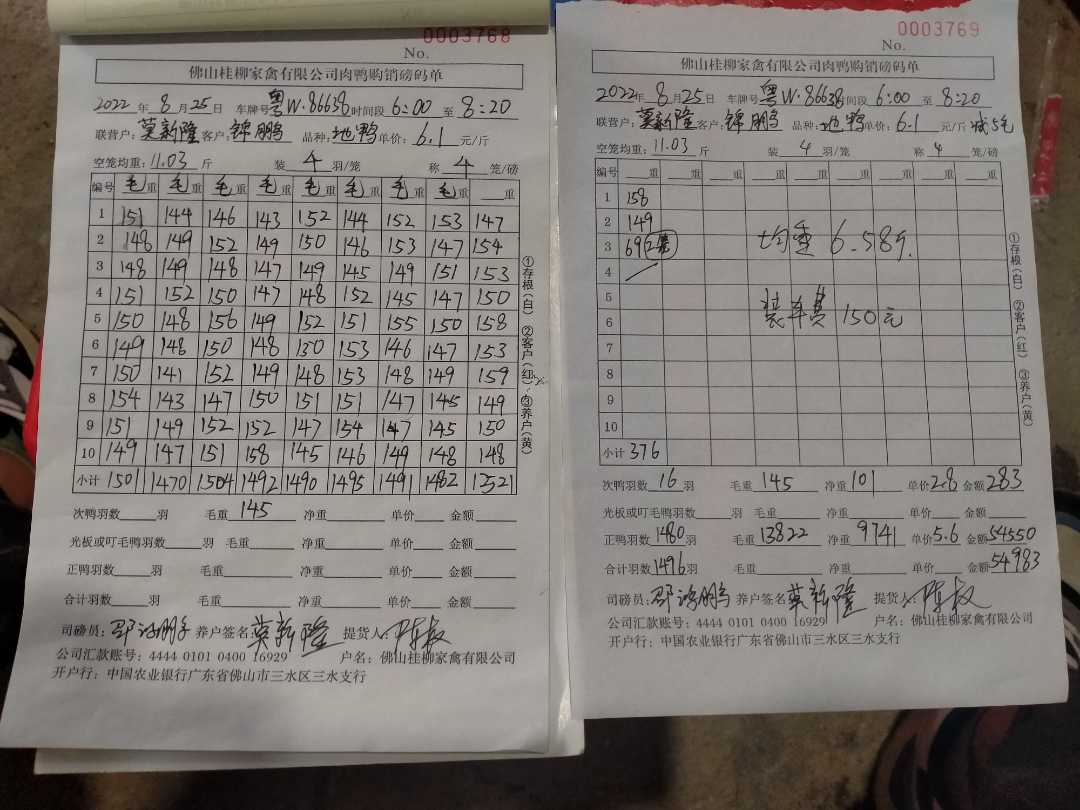 0003768
No.
佛山桂柳家禽有限公司肉鸭购销磅码单
2022年8月25日 车牌号粤W·86638时间段6:00至8:20
联营户:莫新隆客户:锦鹏 品种:地鸭单价:6.1元/斤
空笼均重:11.03斤 装4羽/笼 称4笼/磅
编号 毛重 毛重 毛重 毛重 毛重 毛重 毛重 毛重 重
1 151 144 146 143 152 144 152 153 147
2 148 149 152 149 150 146 153 147 154
3 148 149 148 147 149 145 149 151 153
4 151 152 150 147 148 152 145 147 150
5 150 148 156 149 152 151 155 150 158
6 149 148 150 148 150 153 146 147 153
7 150 141 152 149 148 153 148 149 159
8 154 143 147 150 151 151 147 145 149
9 151 149 152 152 147 154 147 145 150
10 149 147 151 158 145 146 149 148 148
小计 1501 1470 1504 1492 1490 1495 1491 1482 1521
次鸭羽数 羽 毛重145 净重 单价 金额
光板或叮毛鸭羽数 羽 毛重 净重 单价 金额
正鸭羽数 羽 毛重 净重 单价 金额
合计羽数 羽 毛重 净重 单价 金额
司磅员: 养户签名莫新隆 提货人:
公司汇款账号:4444 0101 0400 16929 户名:佛山桂柳家禽有限公司
开户行:中国农业银行广东省佛山市三水区三水支行
①存根(白) ②客户(红) ③养户(黄)
0003769
No.
佛山桂柳家禽有限公司肉鸭购销磅码单
2022年8月25日 车牌号粤W·86638时间段6:00至8:20
联营户:莫新隆客户:锦鹏 品种:地鸭单价:6.1元/斤 减5毛
空笼均重:11.03斤 装4羽/笼 称4笼/磅
编号 重 重 重 重 重 重 重 重
1 158
2 149
3 69
均重6.58斤.
4
5
6
装车费150元
7
8
9
10
小计 376
次鸭羽数16羽 毛重145 净重101 单价2.8 金额283
光板或叮毛鸭羽数 羽 毛重 净重 单价 金额
正鸭羽数1480羽 毛重13822 净重9741 单价5.6 金额54550
合计羽数1496羽 毛重 净重 单价 金额54983
司磅员: 养户签名莫新隆 提货人:
公司汇款账号:4444 0101 0400 16929 户名:佛山桂柳家禽有限公司
开户行:中国农业银行广东省佛山市三水区三水支行
①存根(白) ②客户(红) ③养户(黄)